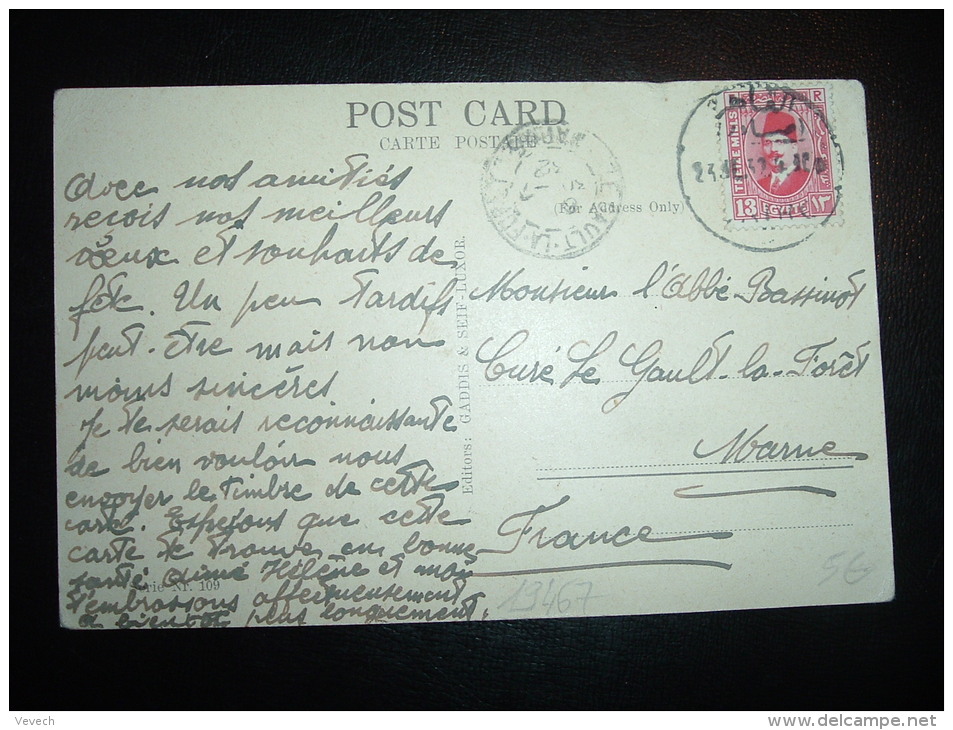 POST CARD
CARTE POSTALE
(For Address Only)
TREIZE MILLS
13
١٣
EGYPTE
Avec nos amitiés
reçois nos meilleurs
vœux et souhaits de
fête. Un peu tardifs
peut-être mais non
moins sincères
Je te serais reconnaissante
de bien vouloir nous
envoyer le timbre de cette
carte. Espérons que cette
carte te trouve en bonne
santé. Aimé Hélène et moi
t'embrassons affectueusement
à bientôt plus longuement.
Serie Nr. 109
Editors: GADDIS & SEIF-LUXOR.
Monsieur l'Abbé Bassinot
Curé Le Gault-la-Forêt
Marne
France
13467
5€
Vevech
www.delcampe.net